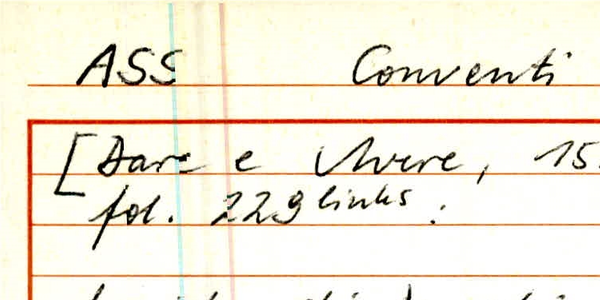 ASS Conventi
[Dare e Avere, 15
fol. 229 links.: